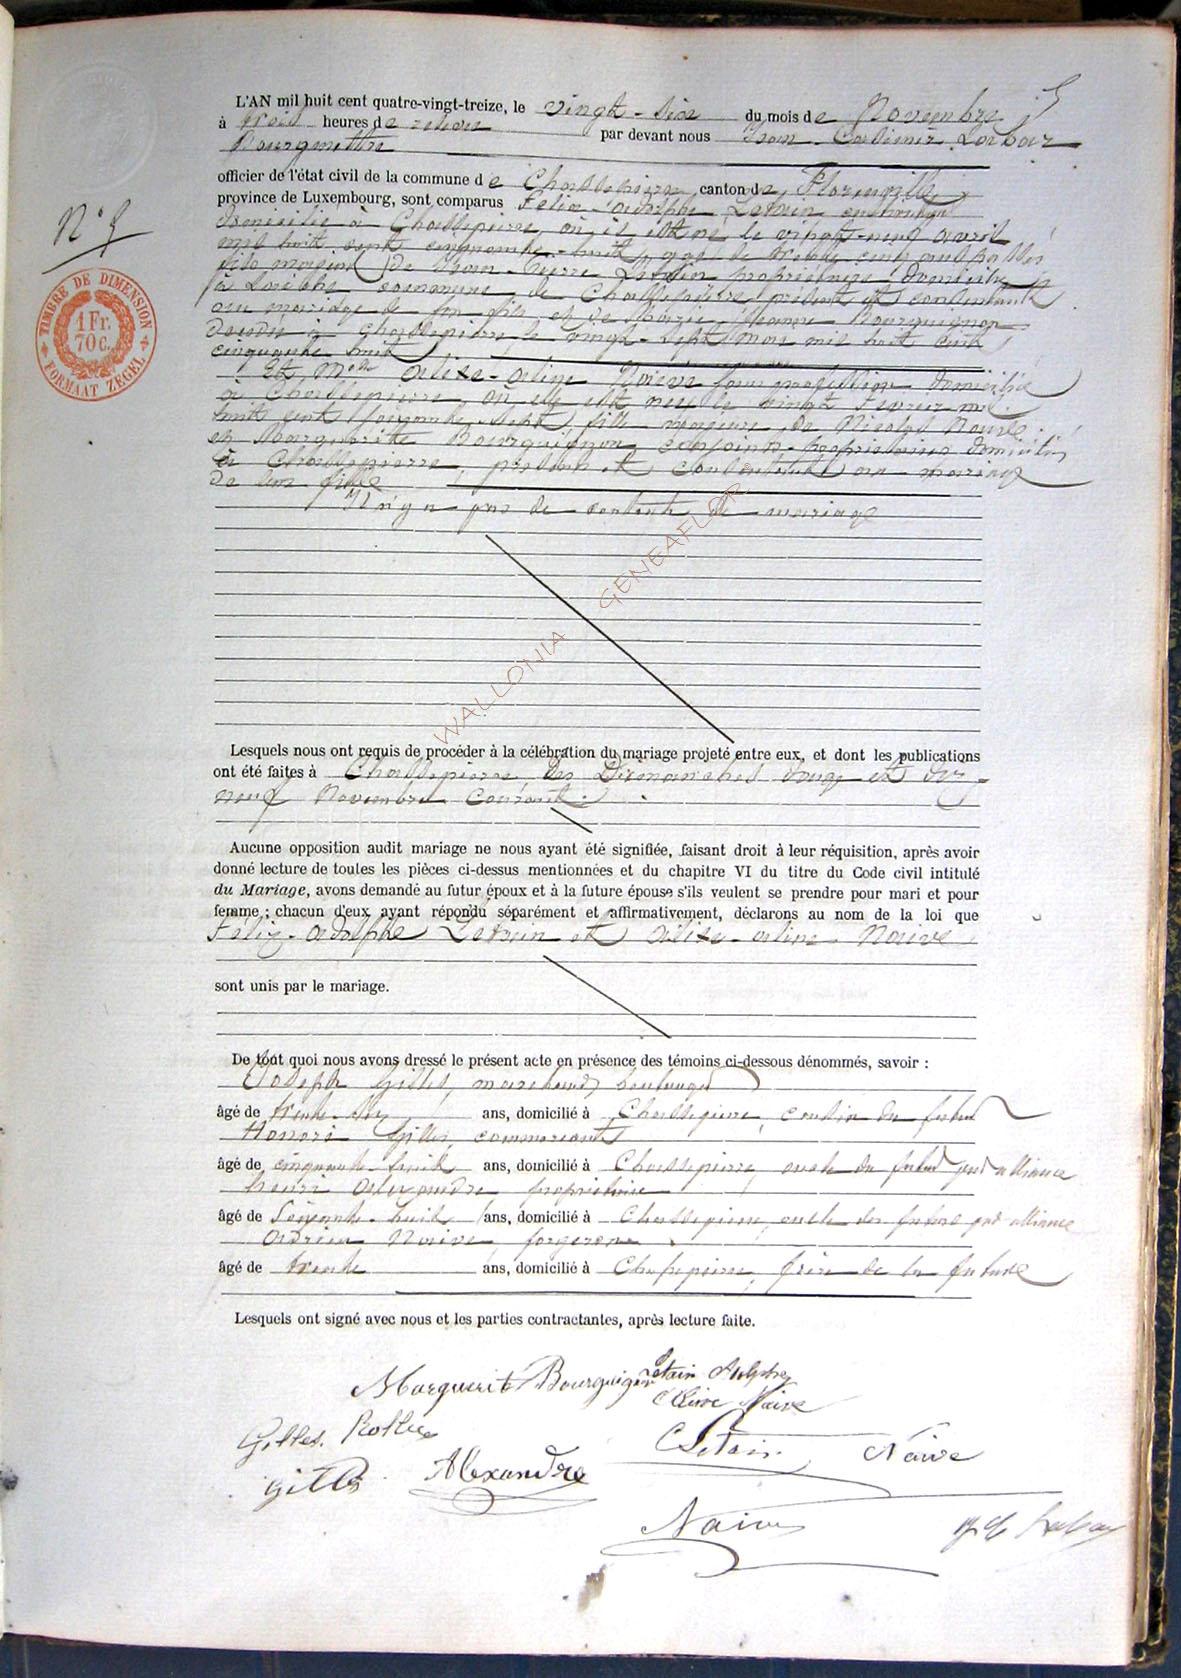 L'AN mil huit cent quatre-vingt-treize, le vingt-six du mois de Novembre
à trois heures de relevée par devant nous Jean-Casimir Labar
Bourgmestre
officier de l'état civil de la commune de Chassepierre, canton de Florenville
province de Luxembourg, sont comparus Félix-Adolphe Letain
domicilié à Chassepierre, où il est né le vingt-neuf avril
mil huit cent cinquante-huit, âgé de trente cinq ans passés
fils majeur de Jean-Pierre Letain propriétaire domicilié
à Laiche commune de Chassepierre présent et consentant
au mariage de son fils, et de Marie Jeanne Bourguignon
décédée à Chassepierre le vingt-sept mai mil huit cent
cinquante huit
Et Melle Alix-Aline Naive sans profession domiciliée
à Chassepierre, où elle est née le vingt Février mil
huit cent soixante-sept, fille majeure de Nicolas Naive
et Marguerite Bourguignon conjoints propriétaires domiciliés
à Chassepierre, présents et consentants au mariage
de leur fille
Il n'y a pas de contrat de mariage
N° 5
TIMBRE DE DIMENSION
1 Fr.
70 c.
FORMAAT ZEGEL
WALLONIA GENEAFLOR
Lesquels nous ont requis de procéder à la célébration du mariage projeté entre eux, et dont les publications
ont été faites à Chassepierre les Dimanches douze et dix
neuf Novembre courant.
Aucune opposition audit mariage ne nous ayant été signifiée, faisant droit à leur réquisition, après avoir
donné lecture de toutes les pièces ci-dessus mentionnées et du chapitre VI du titre du Code civil intitulé
du Mariage, avons demandé au futur époux et à la future épouse s'ils veulent se prendre pour mari et pour
femme ; chacun d'eux ayant répondu séparément et affirmativement, déclarons au nom de la loi que
Félix-Adolphe Letain et Alix-Aline Naive
sont unis par le mariage.
De tout quoi nous avons dressé le présent acte en présence des témoins ci-dessous dénommés, savoir :
Joseph Gilles, marchand boulanger
âgé de trente-six ans, domicilié à Chassepierre, cousin du futur
Honoré Gilles, commerçant
âgé de cinquante-huit ans, domicilié à Chassepierre, oncle du futur par alliance
Henri Alexandre propriétaire
âgé de Soixante-huit ans, domicilié à Chassepierre, oncle du futur par alliance
Adrien Naive, forgeron
âgé de trente ans, domicilié à Chassepierre, frère de la future
Lesquels ont signé avec nous et les parties contractantes, après lecture faite.
Marguerite Bourguignon Letain Adolphe
Aline Naive
Gilles
Letain Naive
Gilles Alexandre
Naive Labar